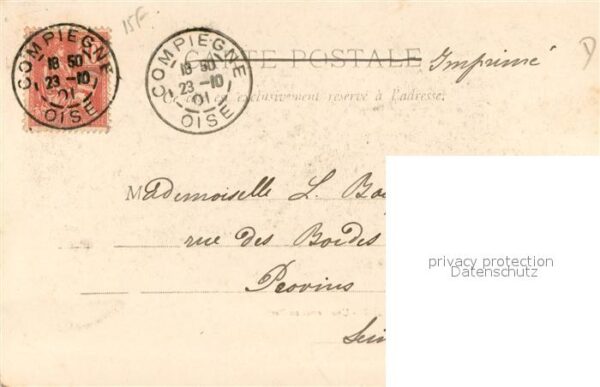 15F
COMPIEGNE
18 50
23 -10
01
OISE
COMPIEGNE
18 50
23 -10
01
OISE
CARTE POSTALE
Imprimé
D
exclusivement réservé à l'adresse.
Mademoiselle L.
rue des Bordes
Provins
privacy protection
Datenschutz